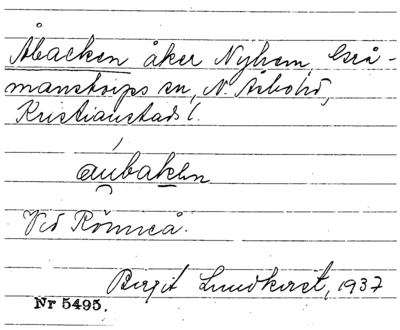 Åbacken åker Nyhem, Grå-
manstorps sn, N. Åsbohd,
Kristianstads l.
áu̯baken
Vid Rönneå.
Birgit Lundkvist, 1937
Nr 5495.